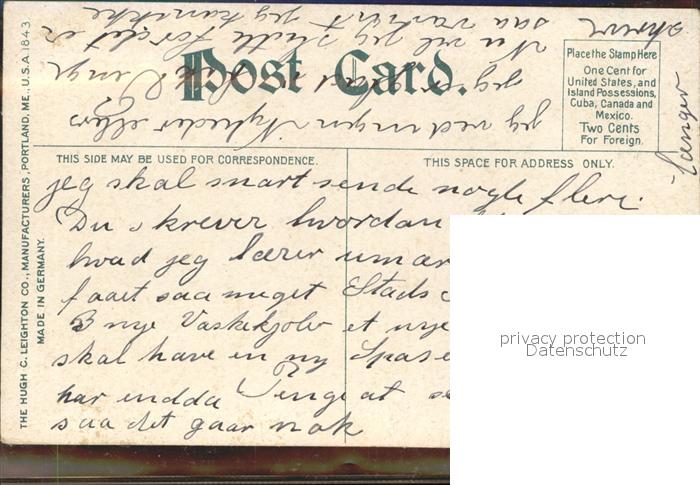 Post Card.
Place the Stamp Here
One Cent for
United States, and
Island Possessions,
Cuba, Canada and
Mexico.
Two Cents
For Foreign.
THIS SIDE MAY BE USED FOR CORRESPONDENCE.
THIS SPACE FOR ADDRESS ONLY.
THE HUGH C. LEIGHTON CO., MANUFACTURERS, PORTLAND, ME., U.S.A 1843
MADE IN GERMANY.
jeg skal snart sende nogle flere.
Du skrever hvordan
hvad jeg lærer
faaet saa meget Stads
3 nye Vaskekjoler et nye
skal have en ny
har endda Penge at
saa det gaar nok
jeg ved ingen Nyheder ellers
jeg
Nu vil jeg slutte for det er
saa varmt jeg kanske
skriver
længer
privacy protection
Datenschutz